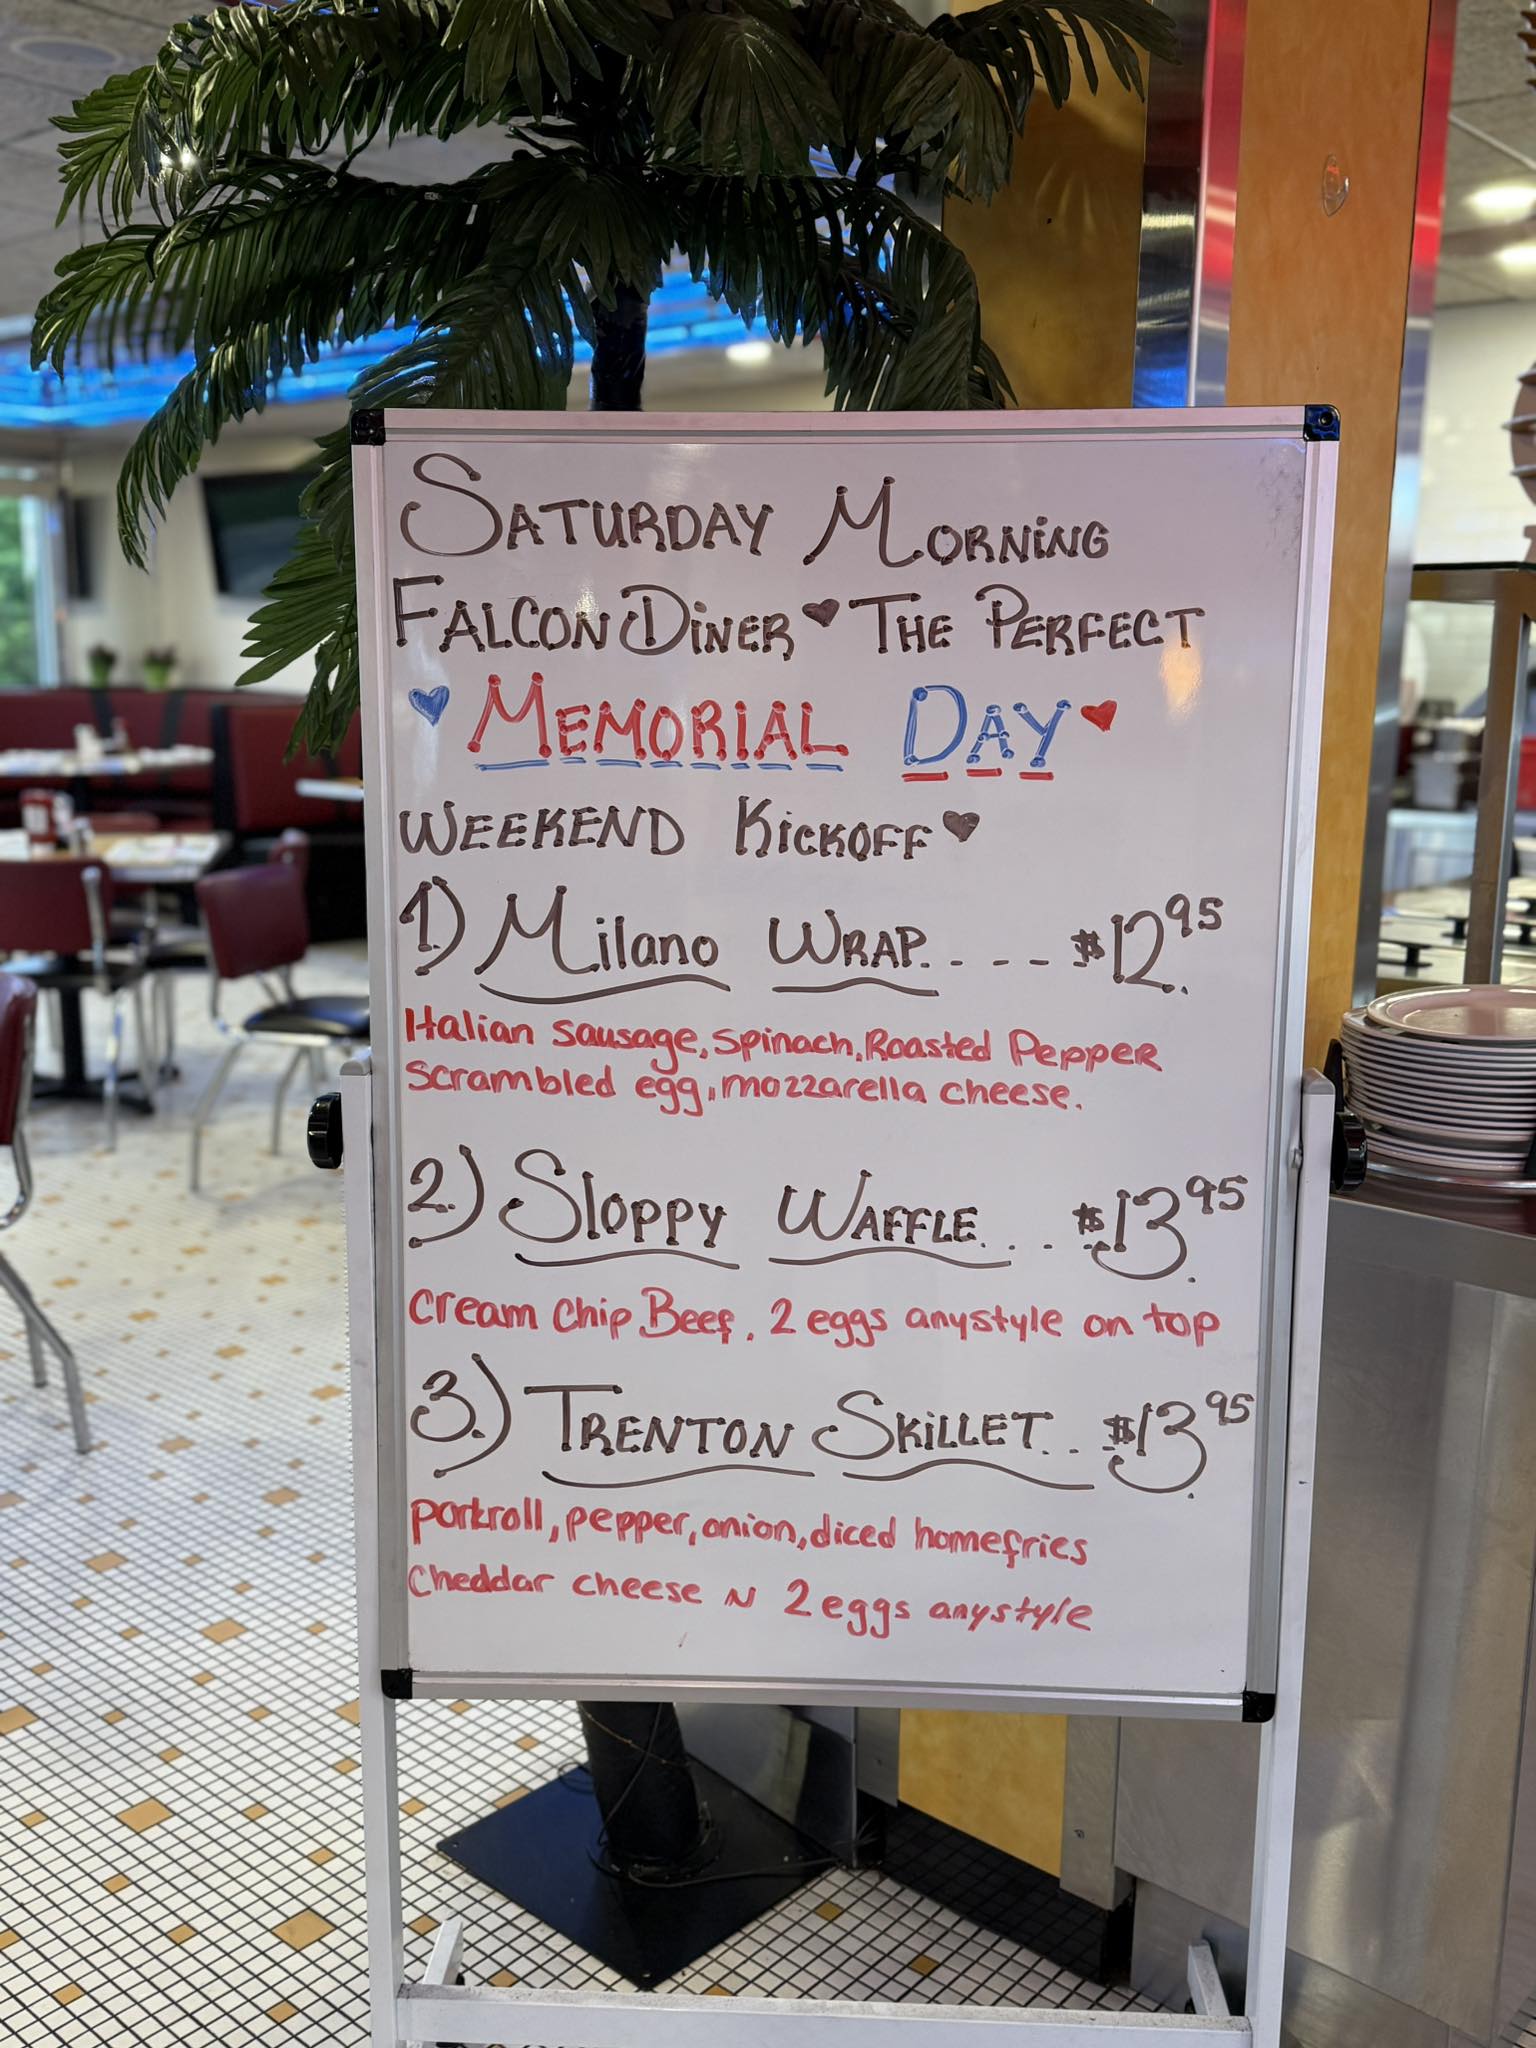 SATURDAY MORNING
FALCON DINER ♥ THE PERFECT
♥ MEMORIAL DAY ♥
WEEKEND KICKOFF ♥
1) Milano WRAP. - - - $12.95
Italian sausage, spinach, Roasted Pepper
scrambled egg, mozzarella cheese.
2.) Sloppy WAFFLE. . . $13.95
cream chip Beef, 2 eggs anystyle on top
3.) TRENTON SKILLET. . $13.95
porkroll, pepper, onion, diced homefries
cheddar cheese N 2 eggs anystyle